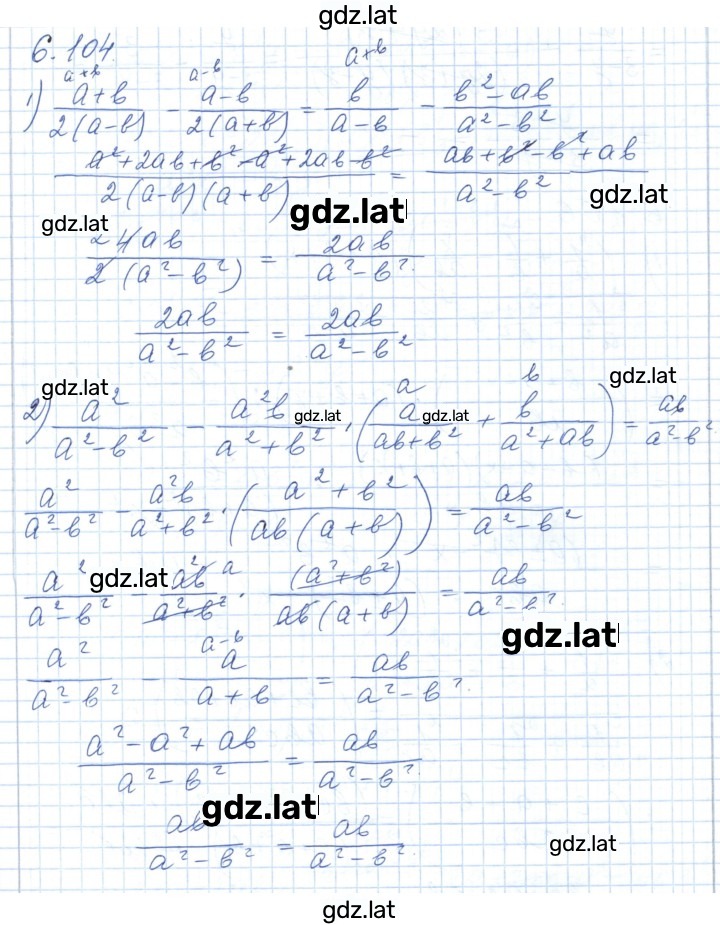 gdz.lat
6.104.
a+b a-b a+b
1) (a+b)/(2(a-b)) - (a-b)/(2(a+b)) = b/(a-b) - (b²-ab)/(a²-b²)
(a²+2ab+b²-a²+2ab-b²)/(2(a-b)(a+b)) = (ab+b²-b²+ab)/(a²-b²)
gdz.lat gdz.lat gdz.lat
2 4ab/(2(a²-b²)) = 2ab/(a²-b²).
2ab/(a²-b²) = 2ab/(a²-b²)
gdz.lat gdz.lat
a b
2) a²/(a²-b²) - a²b/(a²+b²) · (a/(ab+b²) + b/(a²+ab)) = ab/(a²-b²)
gdz.lat gdz.lat
a²/(a²-b²) - a²b/(a²+b²) · ((a²+b²)/(ab(a+b))) = ab/(a²-b²)
a²/(a²-b²) - a²b a/(a²+b²) · (a²+b²)/(ab(a+b)) = ab/(a²-b²).
gdz.lat gdz.lat
a-b
a²/(a²-b²) - a/(a+b) = ab/(a²-b²).
(a²-a²+ab)/(a²-b²) = ab/(a²-b²).
gdz.lat
ab/(a²-b²) = ab/(a²-b²).
gdz.lat
gdz.lat